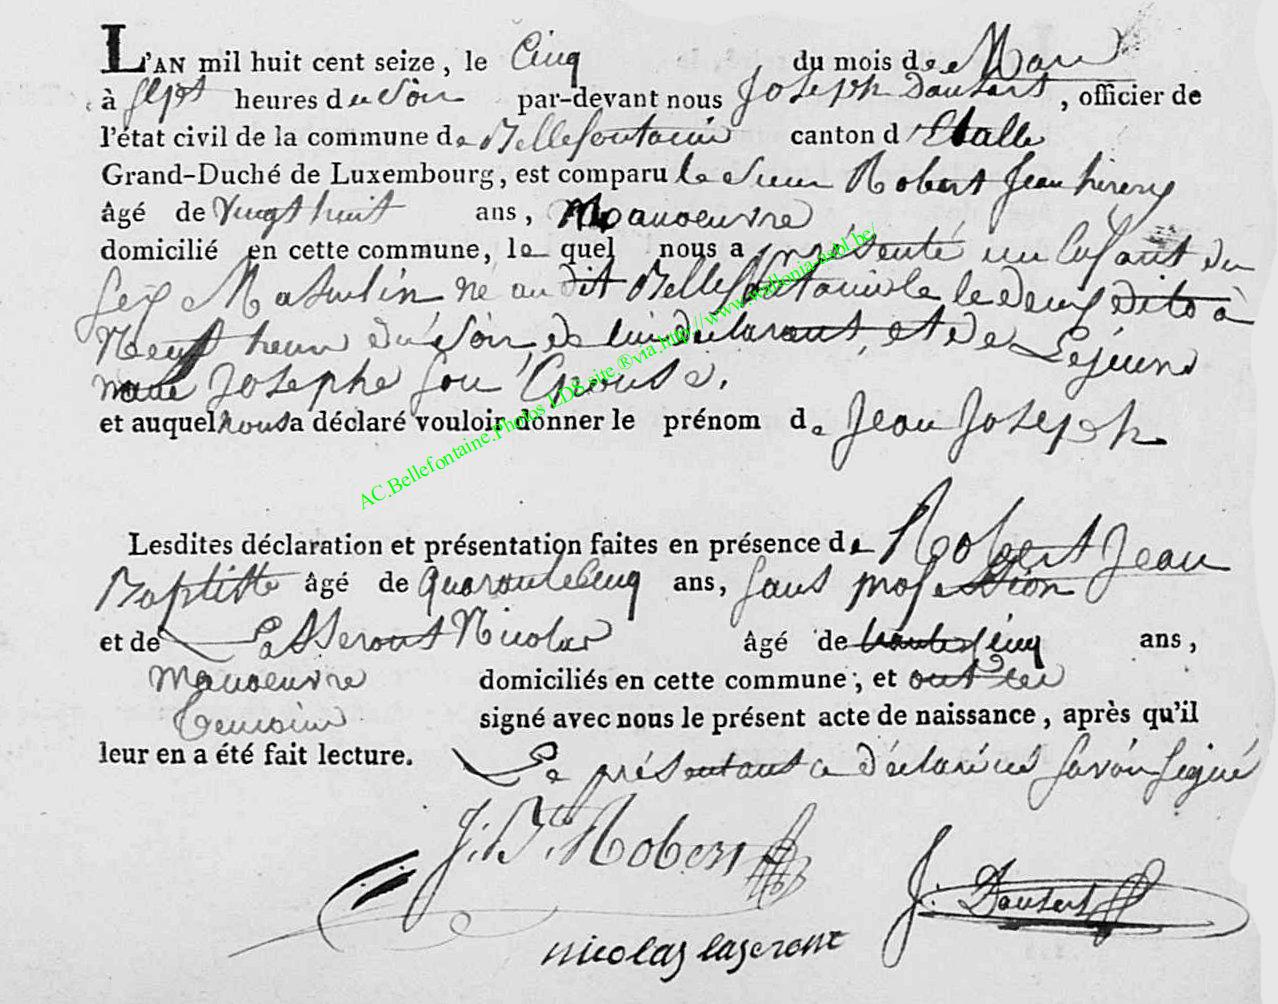 L'AN mil huit cent seize, le Cinq du mois de Mars
à Sept heures du Soir par-devant nous Joseph Dautert, officier de
l'état civil de la commune de Bellefontaine canton d'Etalle
Grand-Duché de Luxembourg, est comparu le Sieur Robert Jean
âgé de Vingt huit ans, Manoeuvre
domicilié en cette commune, le quel nous a présenté un Enfant du
Sex Masculin né au dit Bellefontaine le deux dito à
Neuf heur du Soir de lui declarant et de Lejeune
Marie Josephe Son Epouse.
et auquel nous a déclaré vouloir donner le prénom de Jean Joseph
Lesdites déclaration et présentation faites en présence de Robert Jean
Baptiste âgé de Quarantecinq ans, Sans profession
et de Lasseront Nicolas âgé de trente Cinq ans,
Manoeuvre domiciliés en cette commune, et ont les
temoins signé avec nous le présent acte de naissance, après qu'il
leur en a été fait lecture. Le présentant a déclaré Savoir Signé
J. Bte Robert
J. Dautert
nicolas laseront
AC.Bellefontaine.Photos LDB.site ®via.http://www.wallonia-asbl.be/